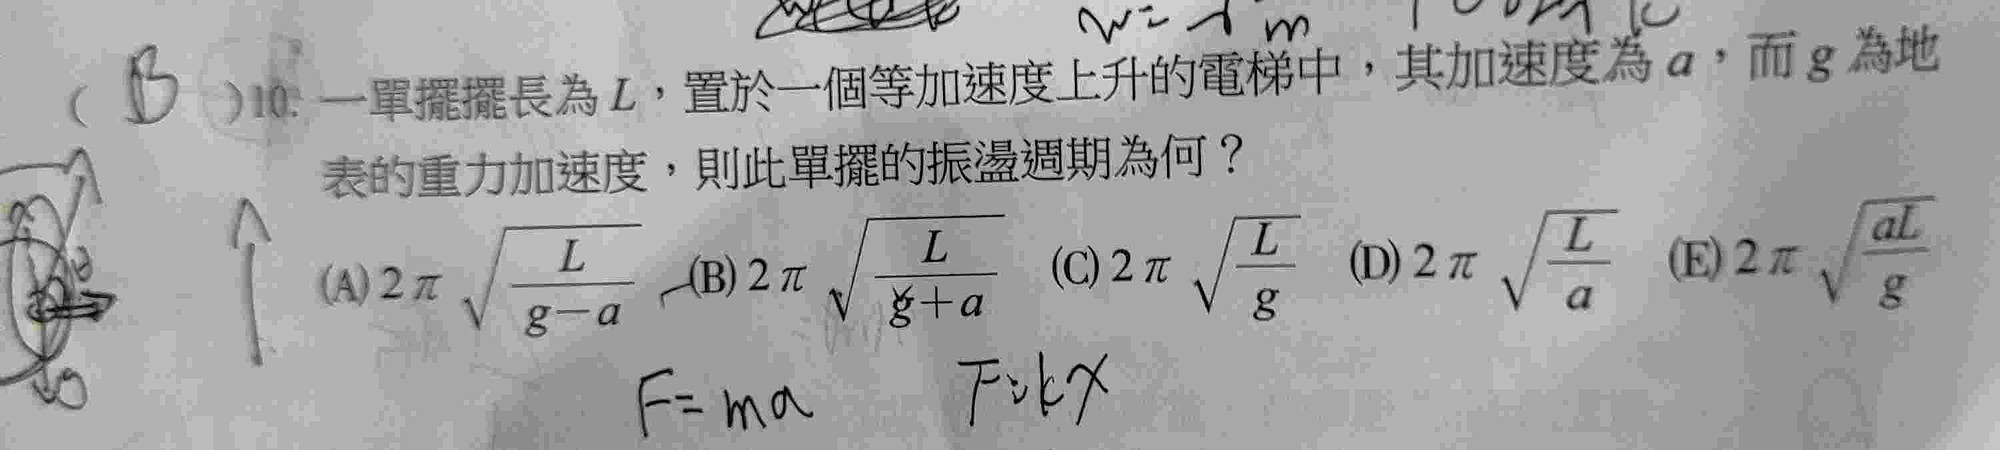 w=
m
( B )10. 一單擺擺長為 L，置於一個等加速度上升的電梯中，其加速度為 a，而 g 為地
表的重力加速度，則此單擺的振盪週期為何？
(A) 2π √(L/(g−a)) (B) 2π √(L/(g+a)) (C) 2π √(L/g) (D) 2π √(L/a) (E) 2π √(aL/g)
F=ma F=kx